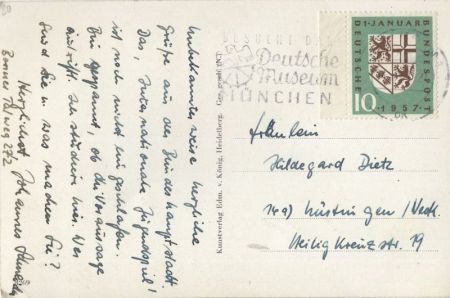 Unbekannterweise herzliche
Grüße aus der Bundeshauptstadt.
Das "Internationale Jugendspiel"
ist noch nicht eingeschlafen.
Bin gespannt, ob die Voraussage
eintrifft. Ich studiere hier. Wer
sind Sie u. was machen Sie?
Herzlichst Johannes
Bonner Talweg 272
Kunstverlag Edm. v. König, Heidelberg. Ges. gesch.
BESUCHT DAS
Deutsche
Museum
MÜNCHEN
1·JANUAR
DEUTSCHE
BUNDESPOST
10
1957
Fräulein
Hildegard Dietz
14a) Nürtingen / Neck.
Heilig Kreuz str. 19
80